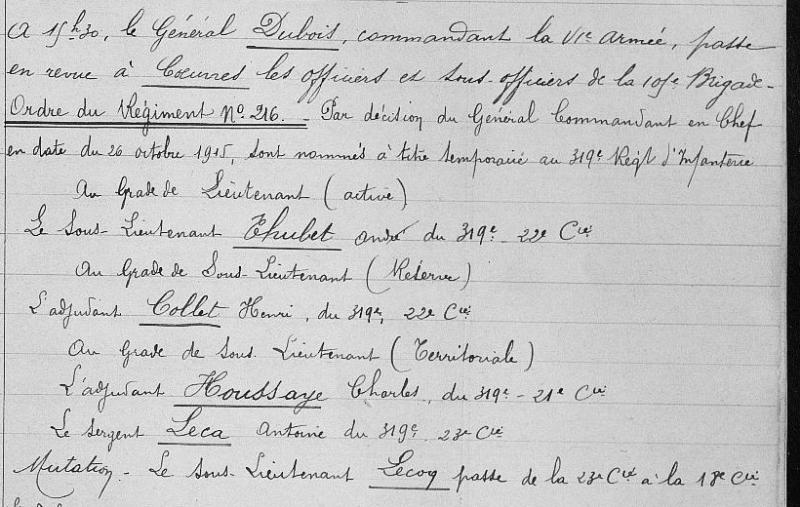 A 15h30, le Général Dubois, commandant la VIe armée, passe
en revue à Coeuvres les officiers et sous-officiers de la 105e Brigade -
Ordre du Régiment No 216. - Par décision du Général Commandant en Chef
en date du 26 octobre 1915, sont nommés à titre temporaire au 319e Régt d'Infanterie
Au Grade de Lieutenant (active)
Le Sous-Lieutenant Thubet André du 319e - 22e Cie
Au Grade de Sous-Lieutenant (Réserve)
L'adjudant Collet Henri, du 319e, 22e Cie
Au Grade de Sous-Lieutenant (Territoriale)
L'adjudant Houssaye Charles, du 319e - 21e Cie
Le Sergent Leca Antoine du 319e, 23e Cie
Mutation - Le Sous-Lieutenant Lecoq passe de la 23e Cie à la 18e Cie